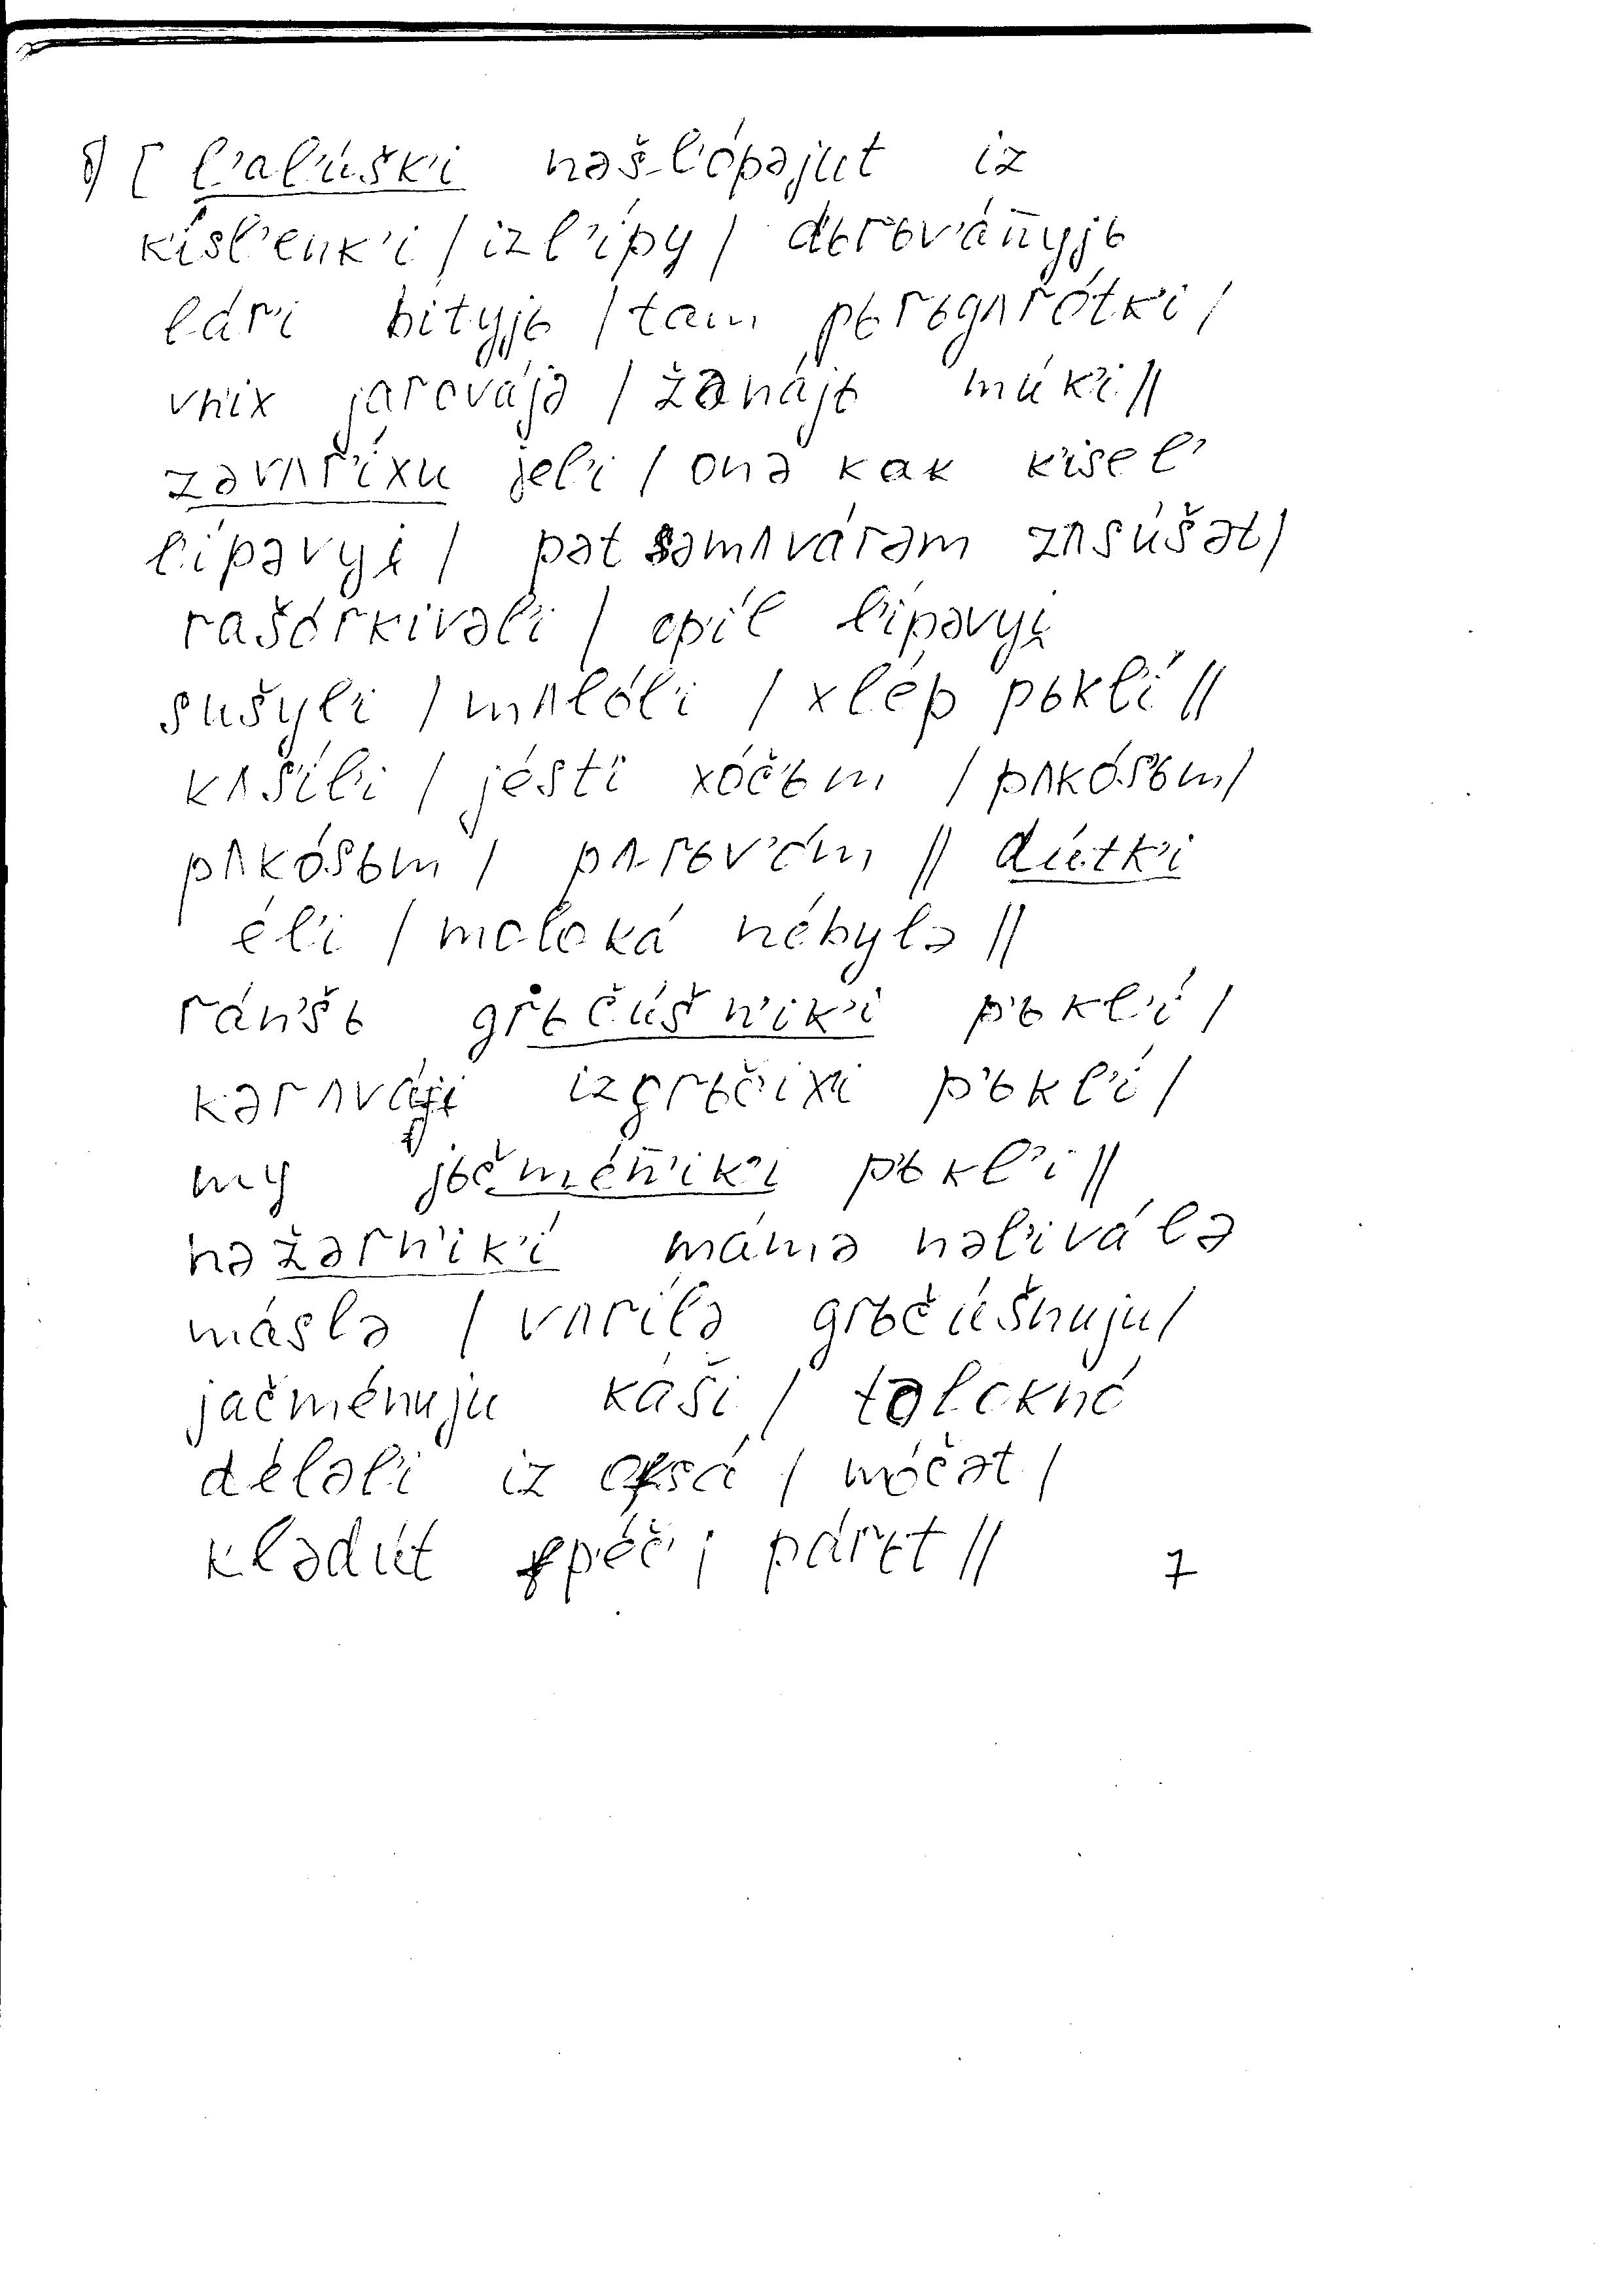 б) [ l'al'úšk'i nəš-l'ópəjut iz
k'ísl'enk'i / izl'ípy / dьrьván̄yjь
lár'i bítyjь / tam pьrьgʌrótk'i /
vn'ix jarovájə / žənájь múk'i //
zəvʌr'íxu jel'i / onə kak k'isel'
l'ípəvyi̯ / pət səmʌvárəm zʌsúšət /
rašórkivəl'i / op'íl l'ípəvyi̯
sušyl'i / mʌlól'i / xlép pьkl'í //
kʌs'íl'i / jést'i xóčьm / pʌkós'ьm /
pʌkósьm / pʌ-rьv'óm // dútk'i
él'i / moloká nébylə //
rán'šь gr'ьčúšn'ik'i p'ьkl'í /
kərʌváji izgrьčixi p'ьkl'í /
my jьčmén̄'ik'i pьkl'i //
nəžərn'ik'í mámə nəl'iválə
máslə / vʌrílə grьčúšnuju /
jačménuju káši / toloknó
déləl'i iz ofsá / móčət /
klədút fpéč' / pár'ьt // 7